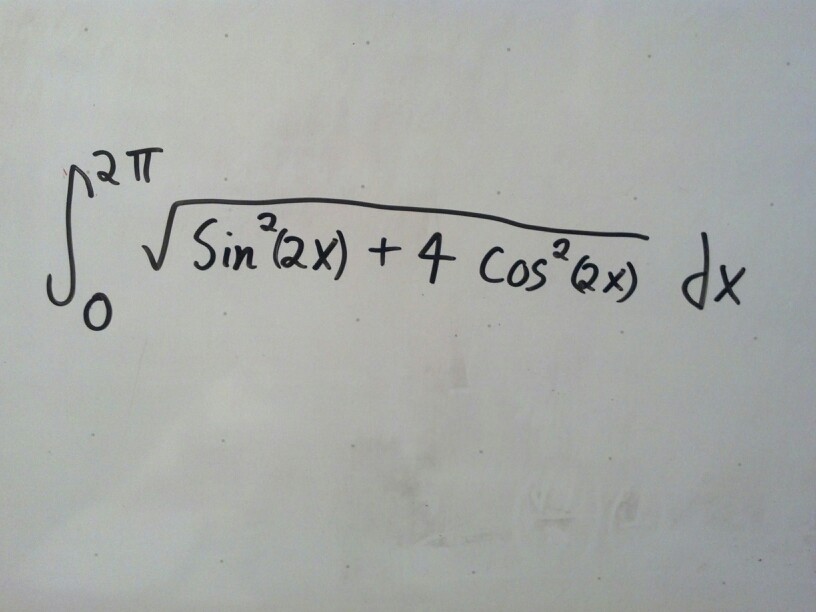 ∫₀^2π √(Sin²(2x) + 4 Cos²(2x)) dx